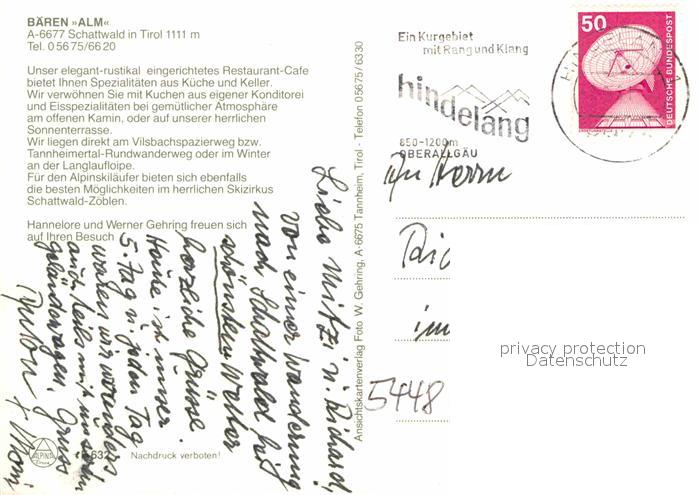 BÄREN »ALM«
A-6677 Schattwald in Tirol 1111 m
Tel. 0 56 75/66 20
Unser elegant-rustikal eingerichtetes Restaurant-Cafe
bietet Ihnen Spezialitäten aus Küche und Keller.
Wir verwöhnen Sie mit Kuchen aus eigener Konditorei
und Eisspezialitäten bei gemütlicher Atmosphäre
am offenen Kamin, oder auf unserer herrlichen
Sonnenterrasse.
Wir liegen direkt am Vilsbachspazierweg bzw.
Tannheimertal-Rundwanderweg oder im Winter
an der Langlaufloipe.
Für den Alpinskiläufer bieten sich ebenfalls
die besten Möglichkeiten im herrlichen Skizirkus
Schattwald-Zöblen.
Hannelore und Werner Gehring freuen sich
auf Ihren Besuch
Liebe Mitzi u. Richard,
von einer Wanderung
nach Schattwald bei
schönstem Wetter
herzliche Grüsse.
Heute ist unser
5. Tag u. jeden Tag
waren wir wandern
auch teils mit
geländewagen. Gruss
Anton + Moni
ALPINA
632
Nachdruck verboten!
Ansichtskartenverlag Foto W. Gehring, A-6675 Tannheim, Tirol - Telefon 05675/6330
Ein Kurgebiet
mit Rang und Klang
hindelang
850-1200m
OBERALLGÄU
50
DEUTSCHE BUNDESPOST
An Herrn
Ric
im
5448
privacy protection
Datenschutz